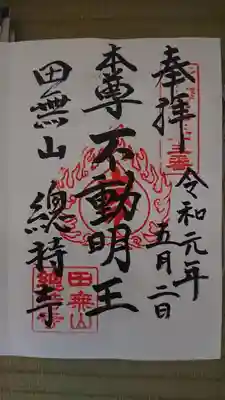 奉拝
令和元年
五月二日
本尊不動明王
田無山 總持寺
田無山
總持寺